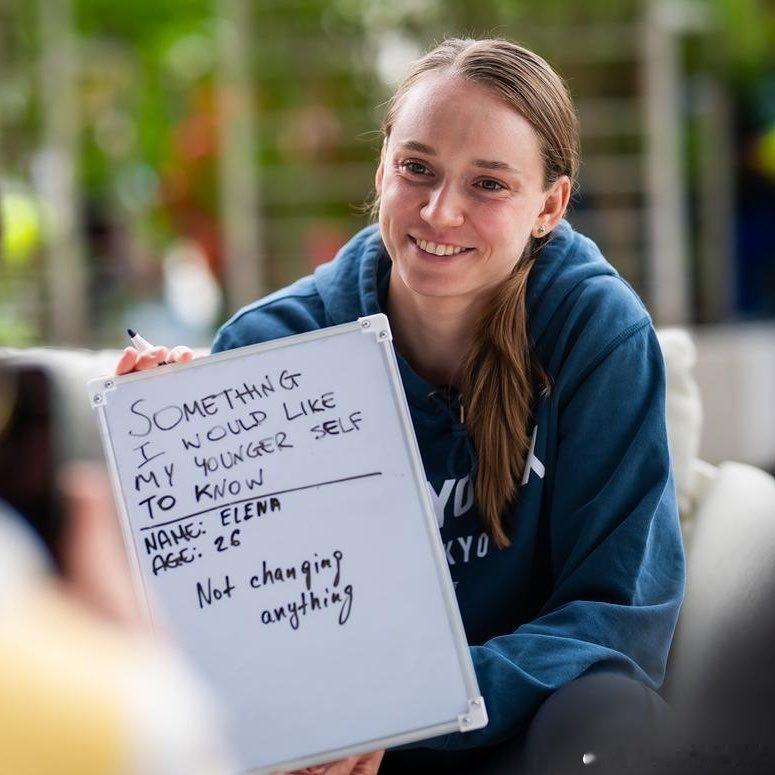 SOMETHING
I WOULD LIKE
MY YOUNGER SELF
TO KNOW
NAME: ELENA
AGE: 26
Not changing
anything